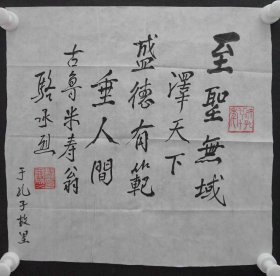 至聖無域
澤天下
盛德有範
垂人間
古魯米壽翁
駱承烈
于孔子故里